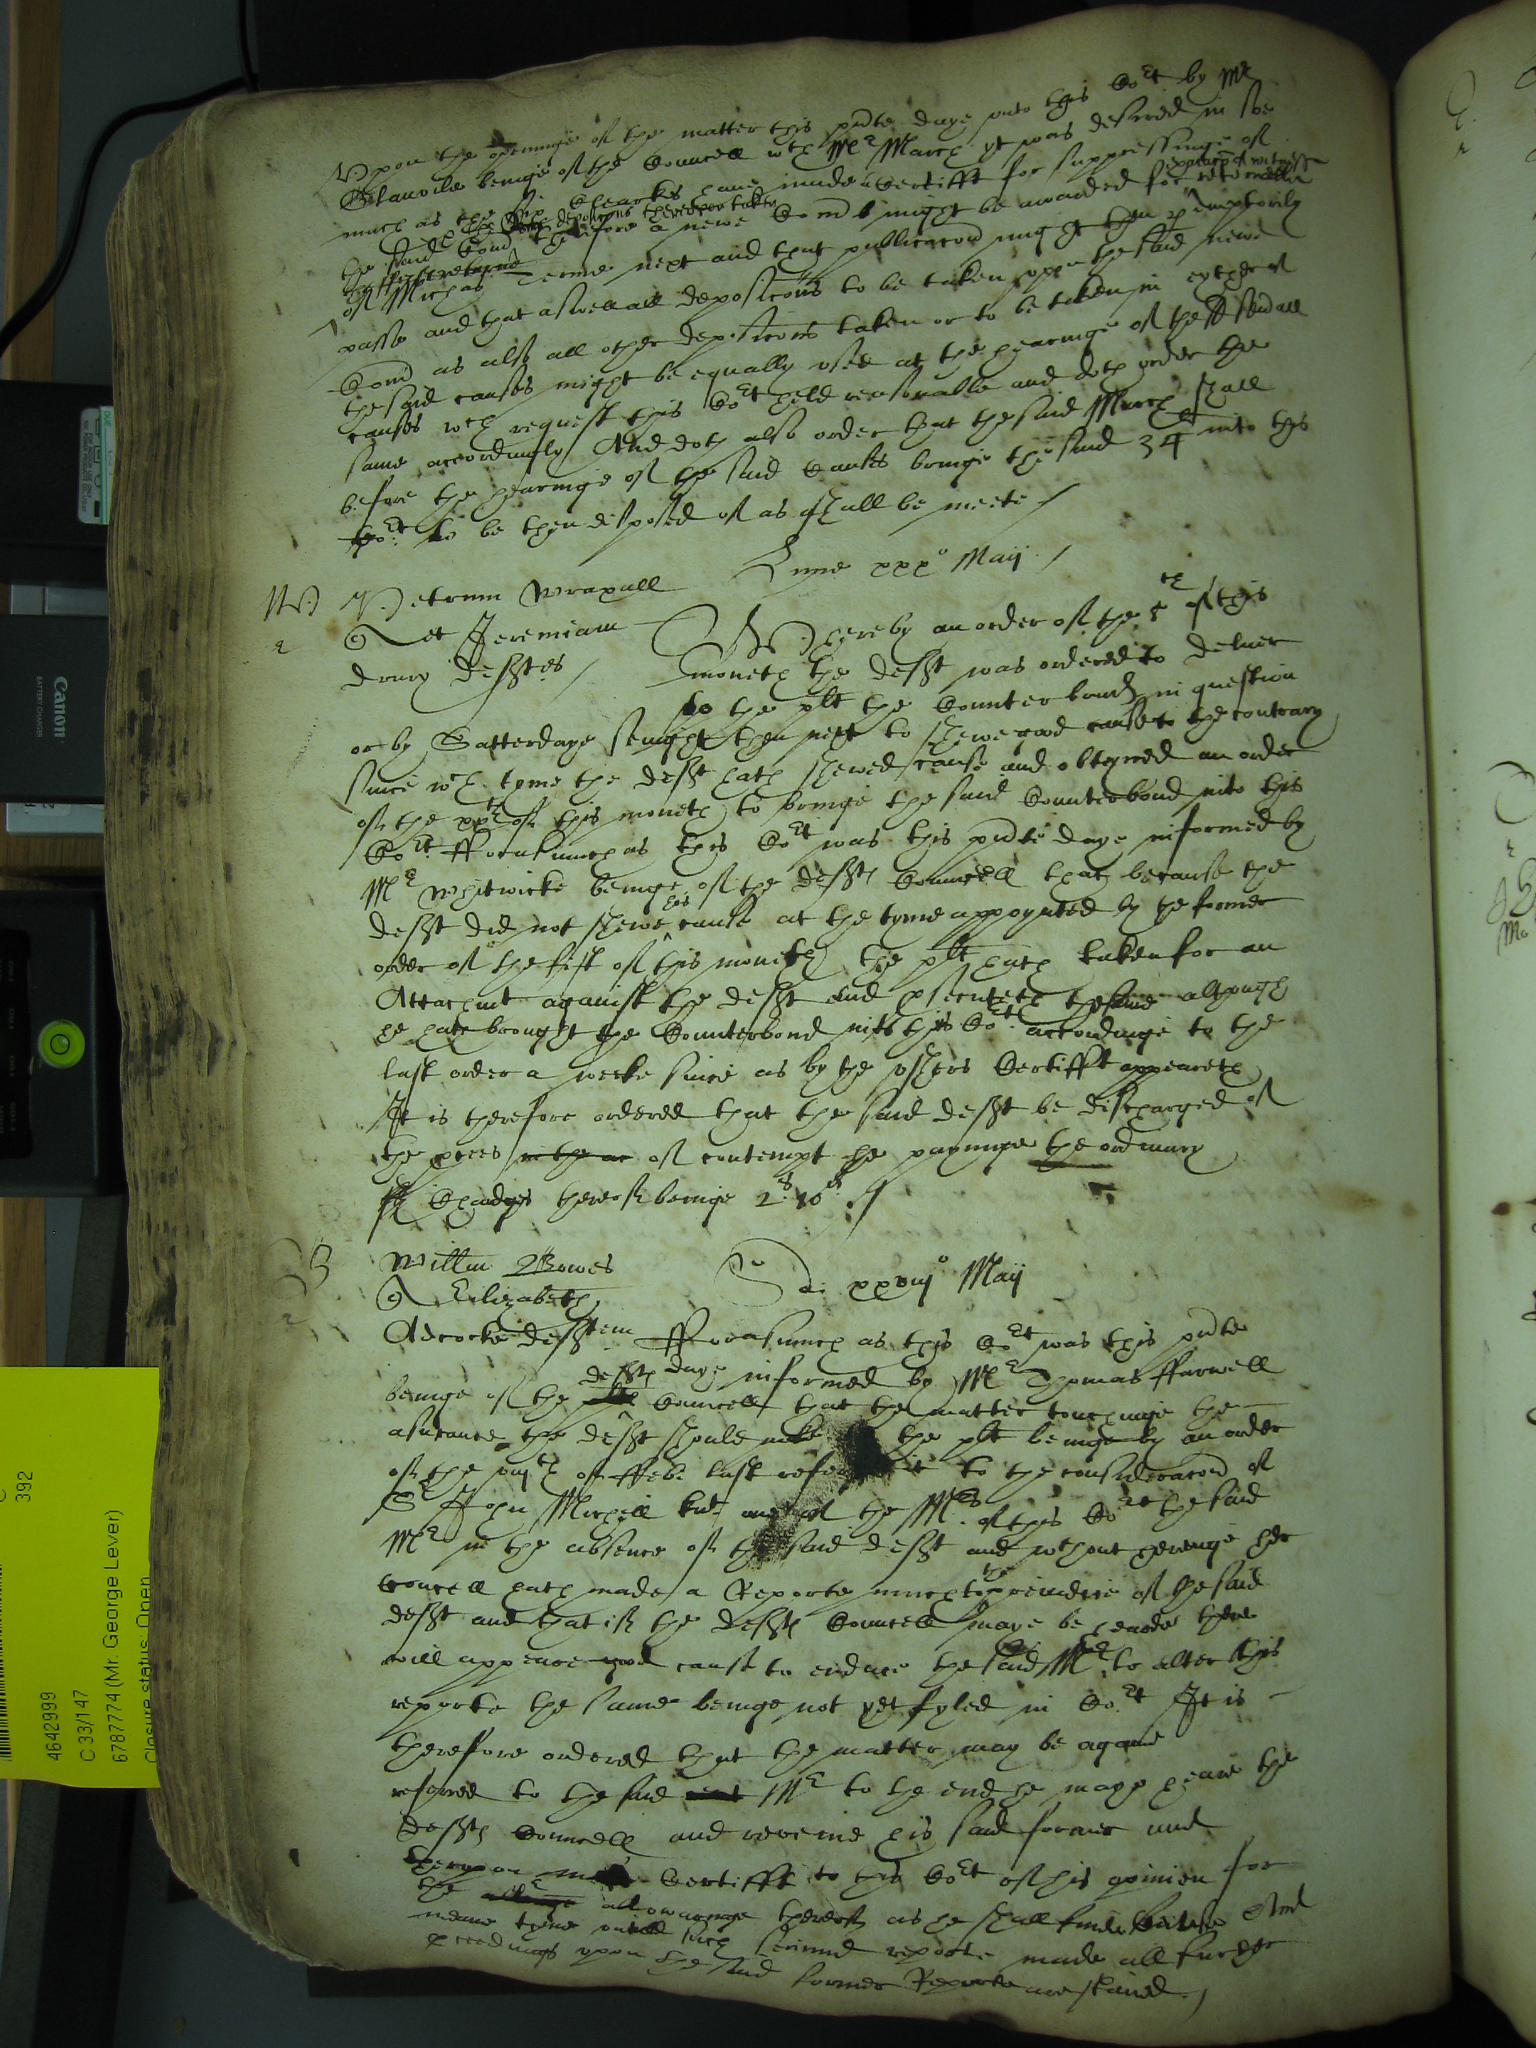 Vpon the openinge of the matter this pnte daye vnto this Cort by Mr
Glanvile beinge of the Councell wth Mr March yt was desired in soe
much as the six Clearkes have made Certifft for suppressinge of
the said Comn & the deposicons therevpon taken
therefore a newe Comn might be awarded for examinacon of witnesses retornable
the first returne
of Michas Terme next and that publicacon might then pemptorily
passe and that aswell all deposicons to be taken vppon the said newe
Comn as also all other deposicons taken or to be taken in eyther of
the said causes might be equally vsed at the hearinge of the said
causes wch request this Cort held reasonable and doth order the
same accordingly And doth also order that the said March shall
before the hearinge of the said causes bringe the said 34li into this
Cort to be then disposed of as shall be meete /
Lune xxxo Maij /
W
2
Petrum Wraxall
et Jeremiam
drury defftes /
Whereby an order of the 5th of this
moneth the defft was ordered to deliver
to the plt the Counter bond in question
or by Satterdaye senight then next to shewe good cause to the contrary
since wch tyme the defft hath shewed cause and obteyned an order
of the xxth of this moneth to bringe the said Counterbond into this
Cort fforasmuch as this Cort was this pnte daye informed by
Mr Whitwicke beinge of the deffts Councell that because the
defft did not shewe his cause at the tyme appoynted by the former
order of the fift of this moneth the plt hath taken for an
Attachmt against the defft and psecuteth the same although
he hath brought the Counterbond into this Cort accordinge to the
last order a weeke since as by the vshers Certifft appeareth
It is therefore ordered that the said defft be discharged of
the pces in the ar of contempt he payinge the ordinary
Chardges thereof beinge 2s 10d /
B
2
Willm Bowes
Elizabeth
Adcocke defftem
Sdi xxviijo Maij
fforasmuch as this Cort was this pnte
daye informed by Mr Thomas ffarwell
beinge of the deffts Councell that the matter touchinge the
assurance the defft should make the plt beinge by an order
of the of ffeb: last referred to the consideracon of
Sr John Michell knt one of the Mrs of this Cort the said
Mr in the absence of the said defft and wthout hearinge her
councell hath made a Reporte much to the preiudice of the said
defft and that if the deffts Councell maye be hearde there
will appeare good cause to enduce the said Mr to alter this
reporte the same beinge not yet fyled in Cort It is
therefore ordered that the matter may be againe
referred to the said Mr to the end he maye heare the
deffts Councell and reveiue his said former and
therevpon make Certifft to this Cort of his opinion for
the allowaunce thereof as he shall finde cause And
meane tyme vntill such second reporte made all further
pceedings vpon the said former Reporte are stained /
Canon
BATTERY CHARGER
392
4642999
C 33/147
6787774 (Mr. George Lever)
Closure status: Open